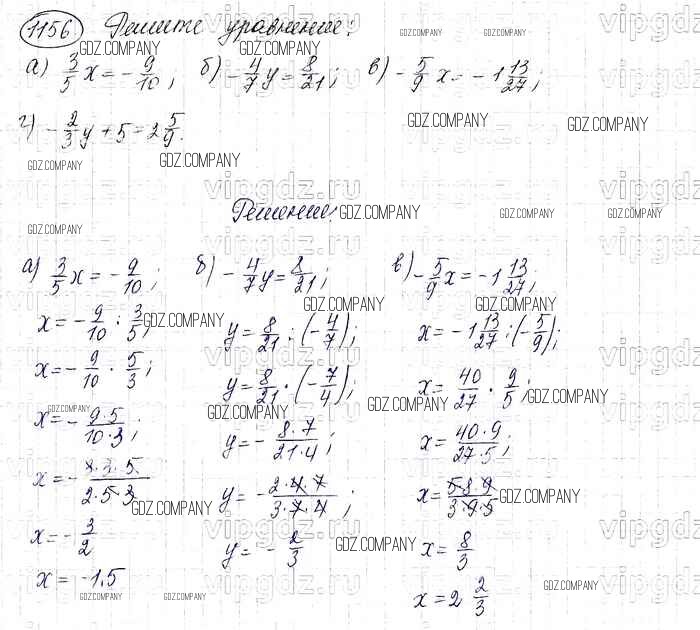 1156 Решите уравнение:
а) 3/5 x = - 9/10; б) - 4/7 y = 8/21; в) - 5/9 x = - 1 13/27;
г) - 2/3 y + 5 = 2 5/9.
Решение:
а) 3/5 x = - 9/10;
x = - 9/10 : 3/5;
x = - 9/10 · 5/3;
x = - 9·5/10·3;
x = - 3·3·5/2·5·3
x = - 3/2
x = -1.5
б) - 4/7 y = 8/21;
y = 8/21 : (- 4/7);
y = 8/21 · (- 7/4);
y = - 8·7/21·4;
y = - 2·4·7/3·7·4;
y = - 2/3
в) - 5/9 x = - 1 13/27;
x = - 1 13/27 : (- 5/9);
x = 40/27 · 9/5;
x = 40·9/27·5;
x = 5·8·9/3·9·5
x = 8/3
x = 2 2/3
GDZ.COMPANY
vipgdz.ru